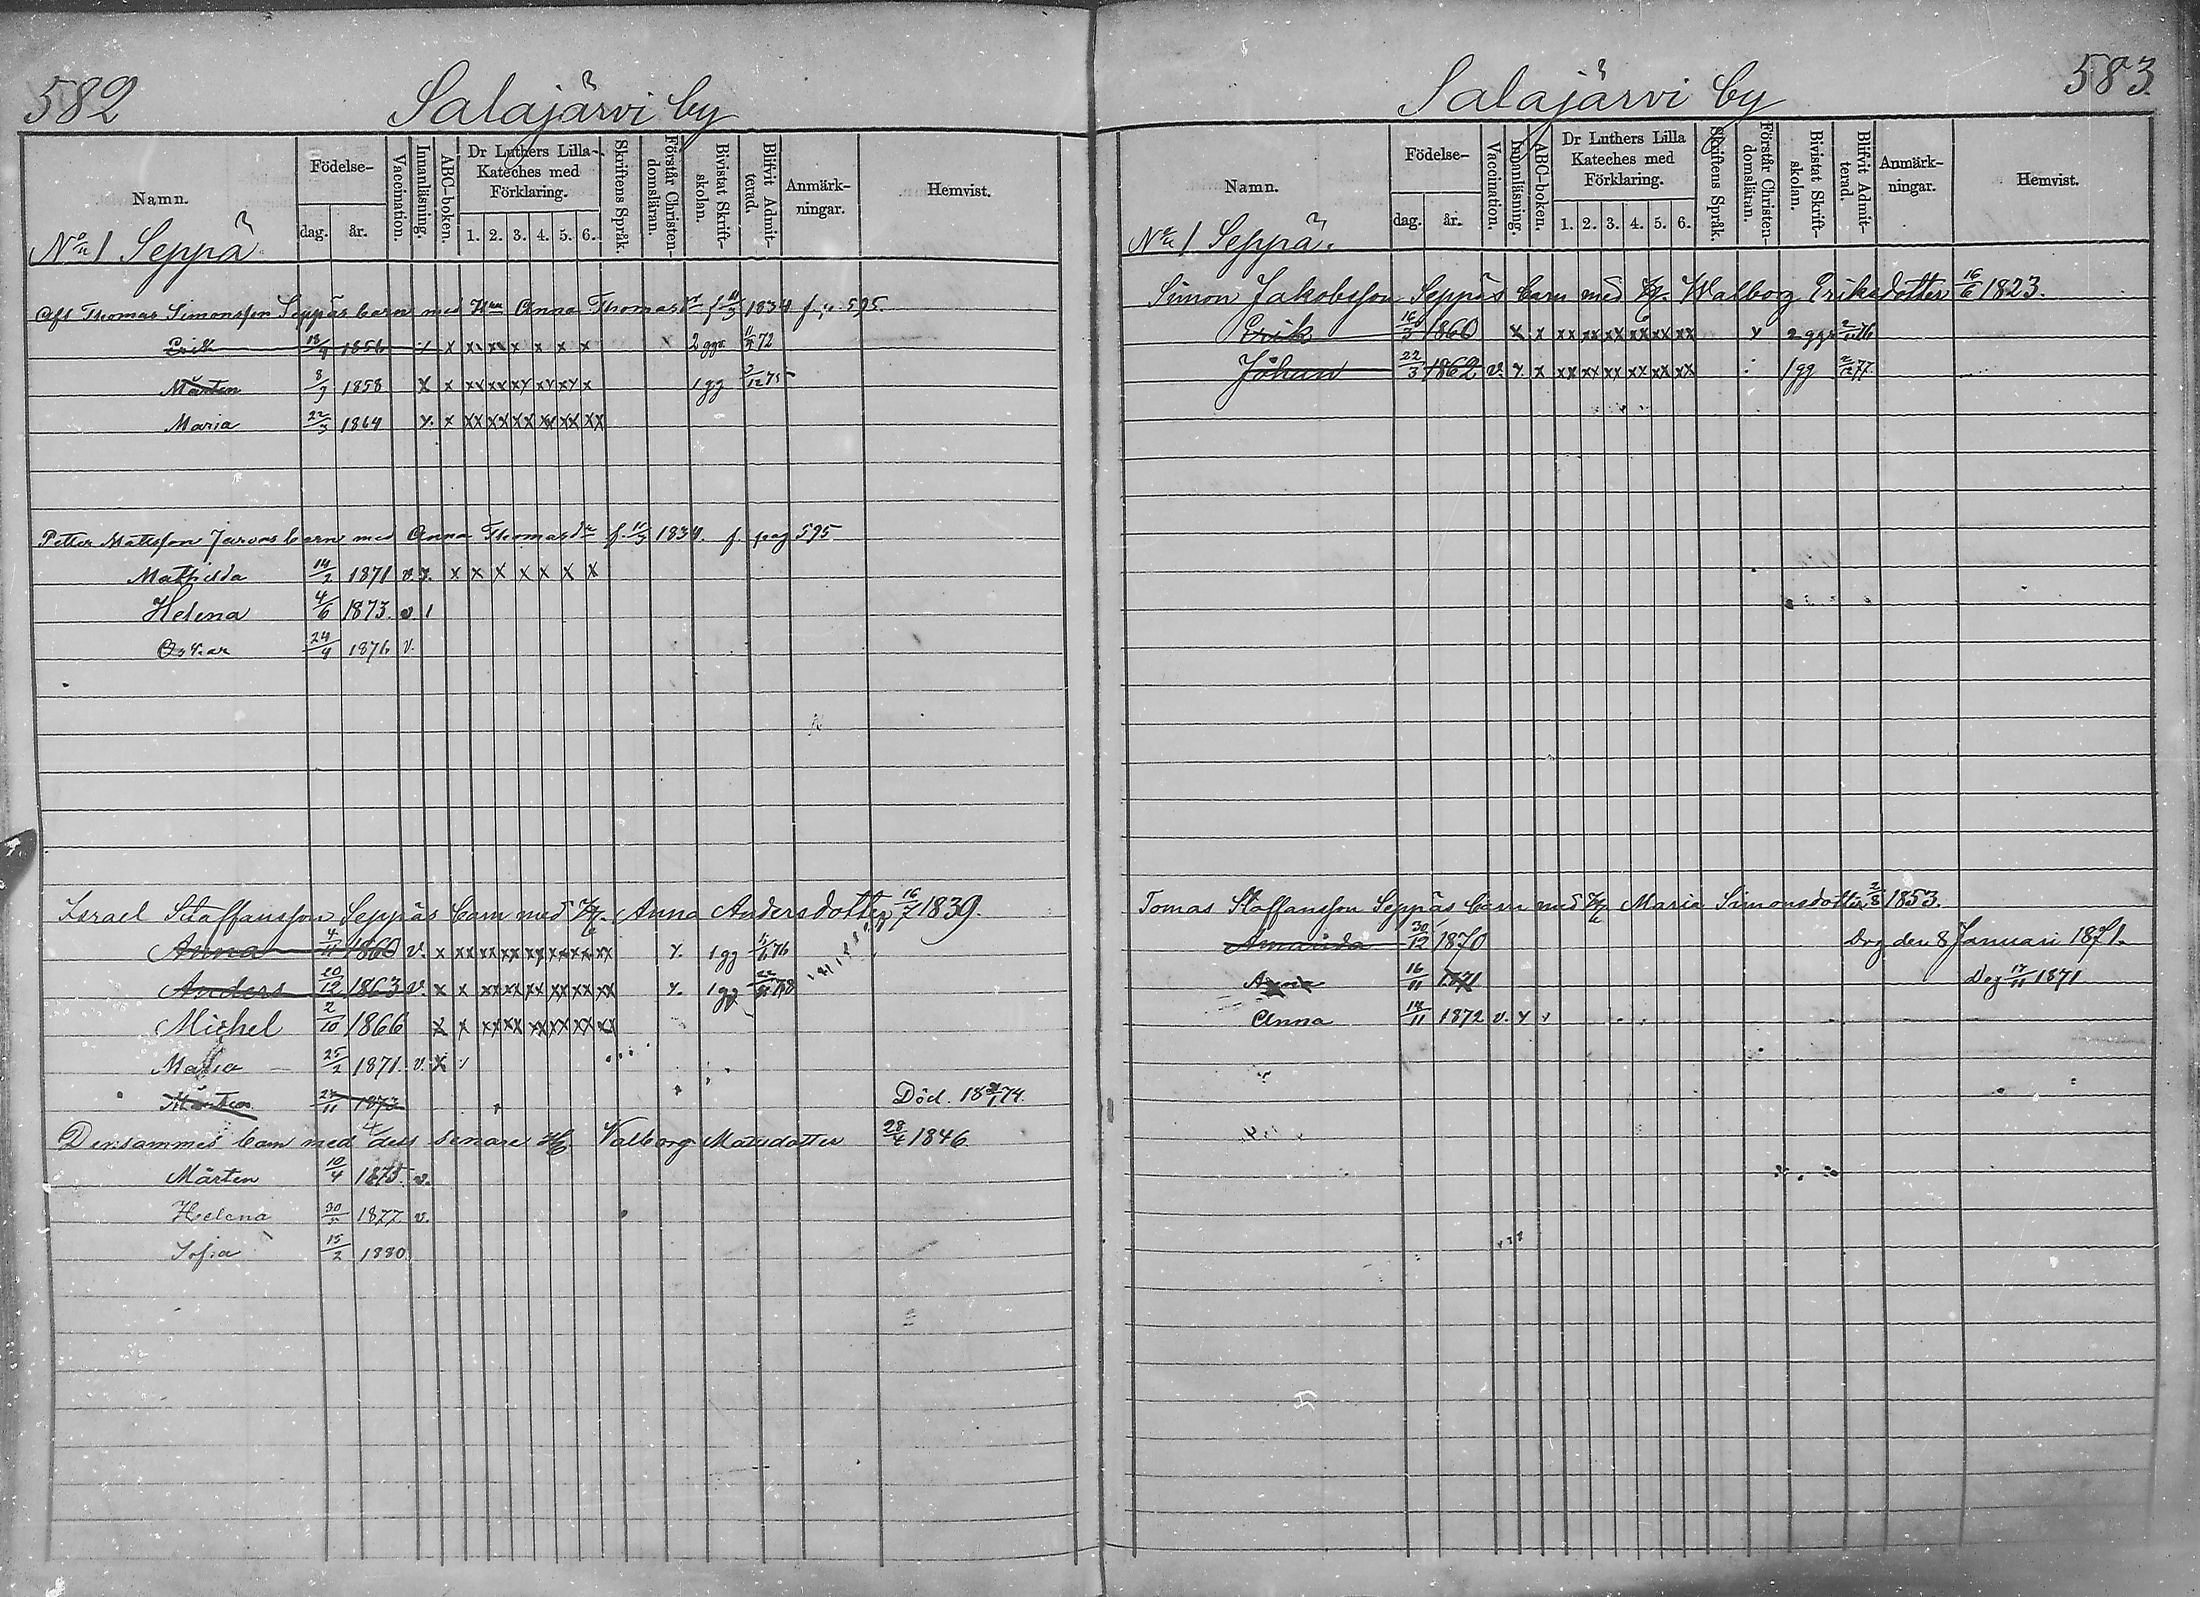 582
Salajärvi by
Namn.
Födelse-
dag.
år.
Vaccination.
Innanläsning.
ABC-boken.
Dr Luthers Lilla Kateches med Förklaring.
1. 2. 3. 4. 5. 6.
Skriftens Språk.
Förstår Christendomsläran.
Bivistat Skriftskolan.
Blifvit Admitterad.
Anmärkningar.
Hemvist.
No 1 Seppä
Afl Thomas Simonsson Seppäs barn med Anna Thomasdr f. 11/3 1834 595.
Erik 18/9 1856 x x x x x x x x 2 ggr 72
Mårten 8/9 1858 x x xx xx xx xx xx x 1 gg 3/12 75
Maria 22/3 1864 x x xx xx xx xx xx xx
Petter Mattsson Jarvas barn med Anna Thomasdr f. 11/3 1834. f pag 595
Mathilda 14/2 1871 v x x x x x x x
Helena 4/6 1873. v 1
Oskar 24/9 1876 v.
Israel Staffansson Seppäs barn med H. Anna Andersdotter 16/7 1839.
Anna 4/11 1860 v. x xx xx xx xx xx xx x. 1 gg 76
Anders 20/12 1863 v. x x xx xx xx xx xx xx x. 1 gg 78
Michel 2/10 1866 x x xx xx xx xx xx xx
Maria 25/2 1871. v. x
Mårten 11 1873 Död. 18 74.
Densammes barn med dess senare H Valborg Matsdotter 28/4 1846
Mårten 10/4 1875. v.
Helena 1877 v.
Sofia 15/2 1880.
583.
Salajärvi by
Namn.
Födelse-
dag.
år.
Vaccination.
Innanläsning.
ABC-boken.
Dr Luthers Lilla Kateches med Förklaring.
1. 2. 3. 4. 5. 6.
Skriftens Språk.
Förstår Christendomsläran.
Bivistat Skriftskolan.
Blifvit Admitterad.
Anmärkningar.
Hemvist.
No 1 Seppä.
Simon Jakobsson Seppäs barn med H. Walborg Eriksdotter 16/6 1823.
Erik 16/3 1860 x x xx xx xx xx xx xx x 2 ggr
Johan 22/3 1862 v. x x xx xx xx xx xx xx 1 gg 2/12 77
Tomas Staffansson Seppäs barn med H Maria Simonsdotter 2/8 1853.
Amanda 30/12 1870 den 8 Januari 1871.
16/11 1871 17/11 1871
Anna 14/11 1872 v. x